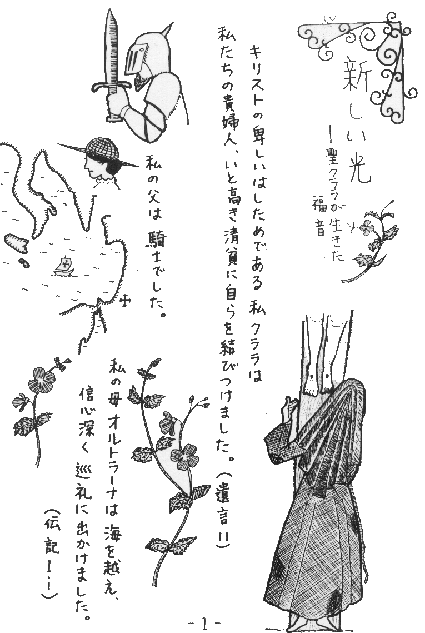 新しい光
―聖クララが生きた
福音
キリストの卑しいはしためである私クララは
私たちの貴婦人、いと高き清貧に自らを結びつけました。(遺言11)
私の父は騎士でした。
私の母オルトラーナは海を越え、
信心深く巡礼に出かけました。
(伝記1・1)
-1-